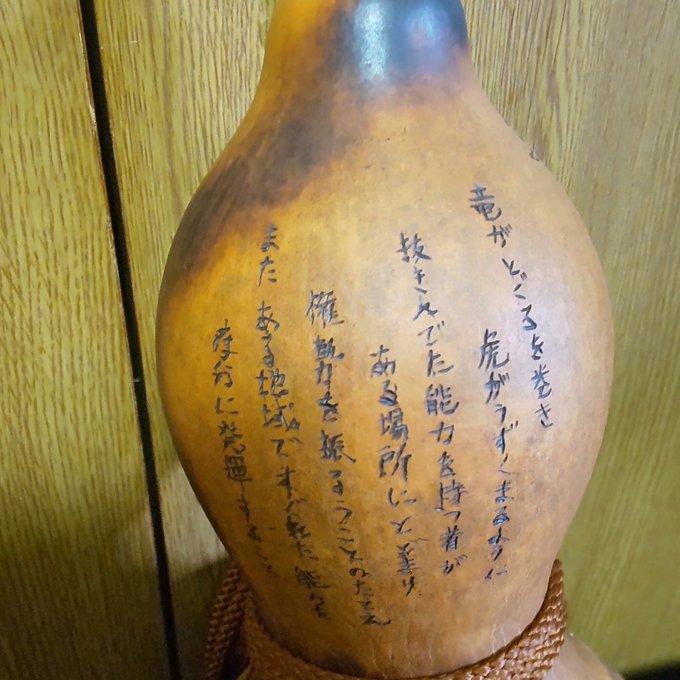 竜がとぐろを巻き
虎がうずくまるように
抜きんでた能力を持つ者が
ある場所にとどまり
権勢力を振るうことのたとえ
また ある地域ですぐれた能力を
存分に発揮すること